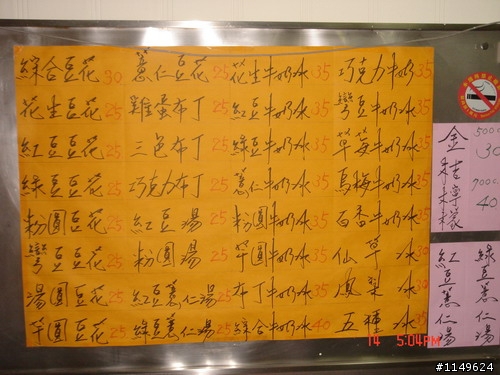 綜合豆花30 薏仁豆花25 花生牛奶冰35 巧克力牛奶35
花生豆花25 雞蛋布丁25 紅豆牛奶冰35 彎豆牛奶冰35
紅豆豆花25 三色布丁25 綠豆牛奶冰35 草莓牛奶冰35
綠豆豆花25 巧克力布丁25 薏仁牛奶冰35 烏梅牛奶冰35
粉圓豆花25 紅豆湯25 粉圓牛奶冰35 百香牛奶冰35
彎豆豆花25 粉圓湯25 芋圓牛奶冰35 仙草冰30
湯圓豆花25 紅豆薏仁湯25 布丁牛奶冰35 鳳梨冰35
芋圓豆花25 綠豆薏仁湯25 綜合牛奶冰40 五種冰35
金桔檸檬
500cc
30
700cc
40
綠豆薏仁湯
紅豆薏仁湯
14 5:04PM
#1149624